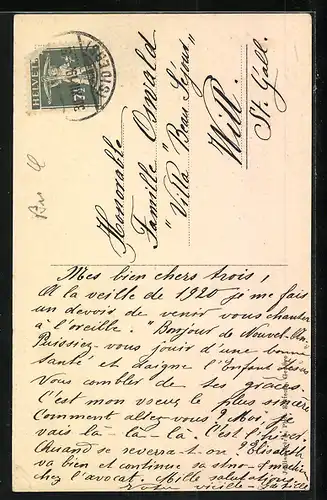 HELVETIA
Honorable
Famille Oswald
"Villa "Beau Séjour"
Will.
St. Gall.
Mes bien chers trois,
A la veille de 1920 je me fais
un devoir de venir vous chanter
à l'oreille. "Bonjour de Nouvel-An"
Puissiez-vous jouir d'une bonne
santé et daigne l'Enfant
vous combler de ses graces.
C'est mon voeux le plus sincère
Comment allez-vous? Moi, je
vais là-là-là. C'est l'hiver.
Quand se reverra-t-on? Elisabeth
va bien et continue sa
chez l'avocat. Mille salutations
votre vieille